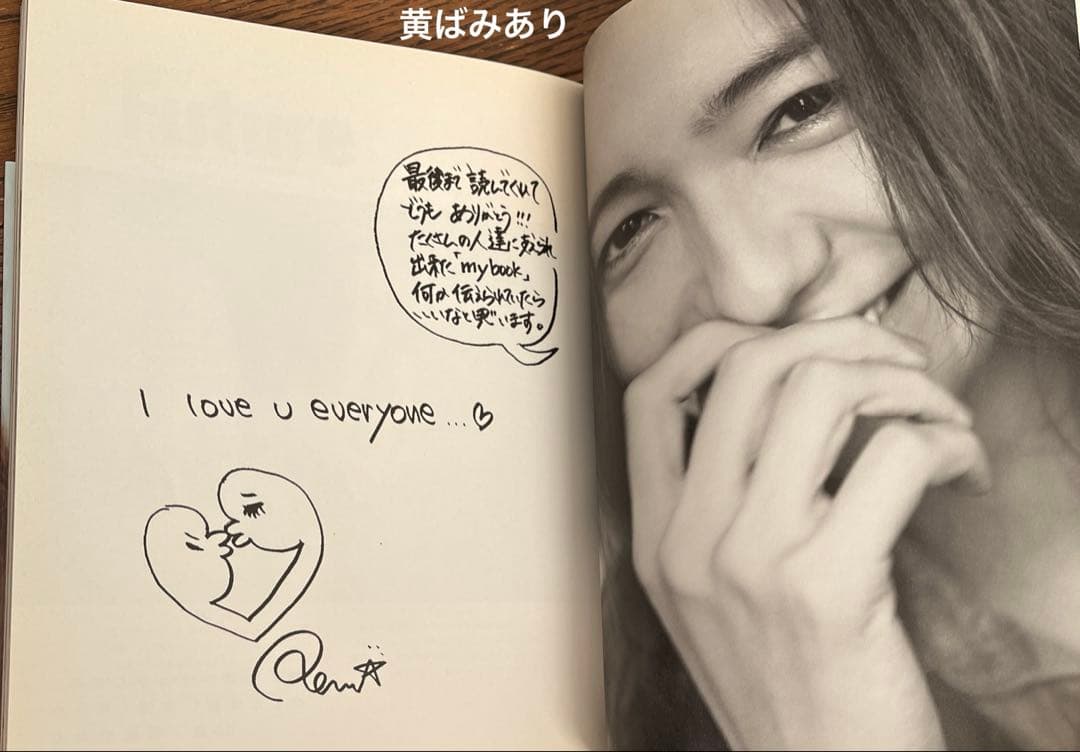 黄ばみあり
最後まで読んでくれて
どうもありがとう!!!
たくさんの人達に支えられ
出来た「my book」
何か伝えられていたら
いいなと思います。
I love u everyone...♡